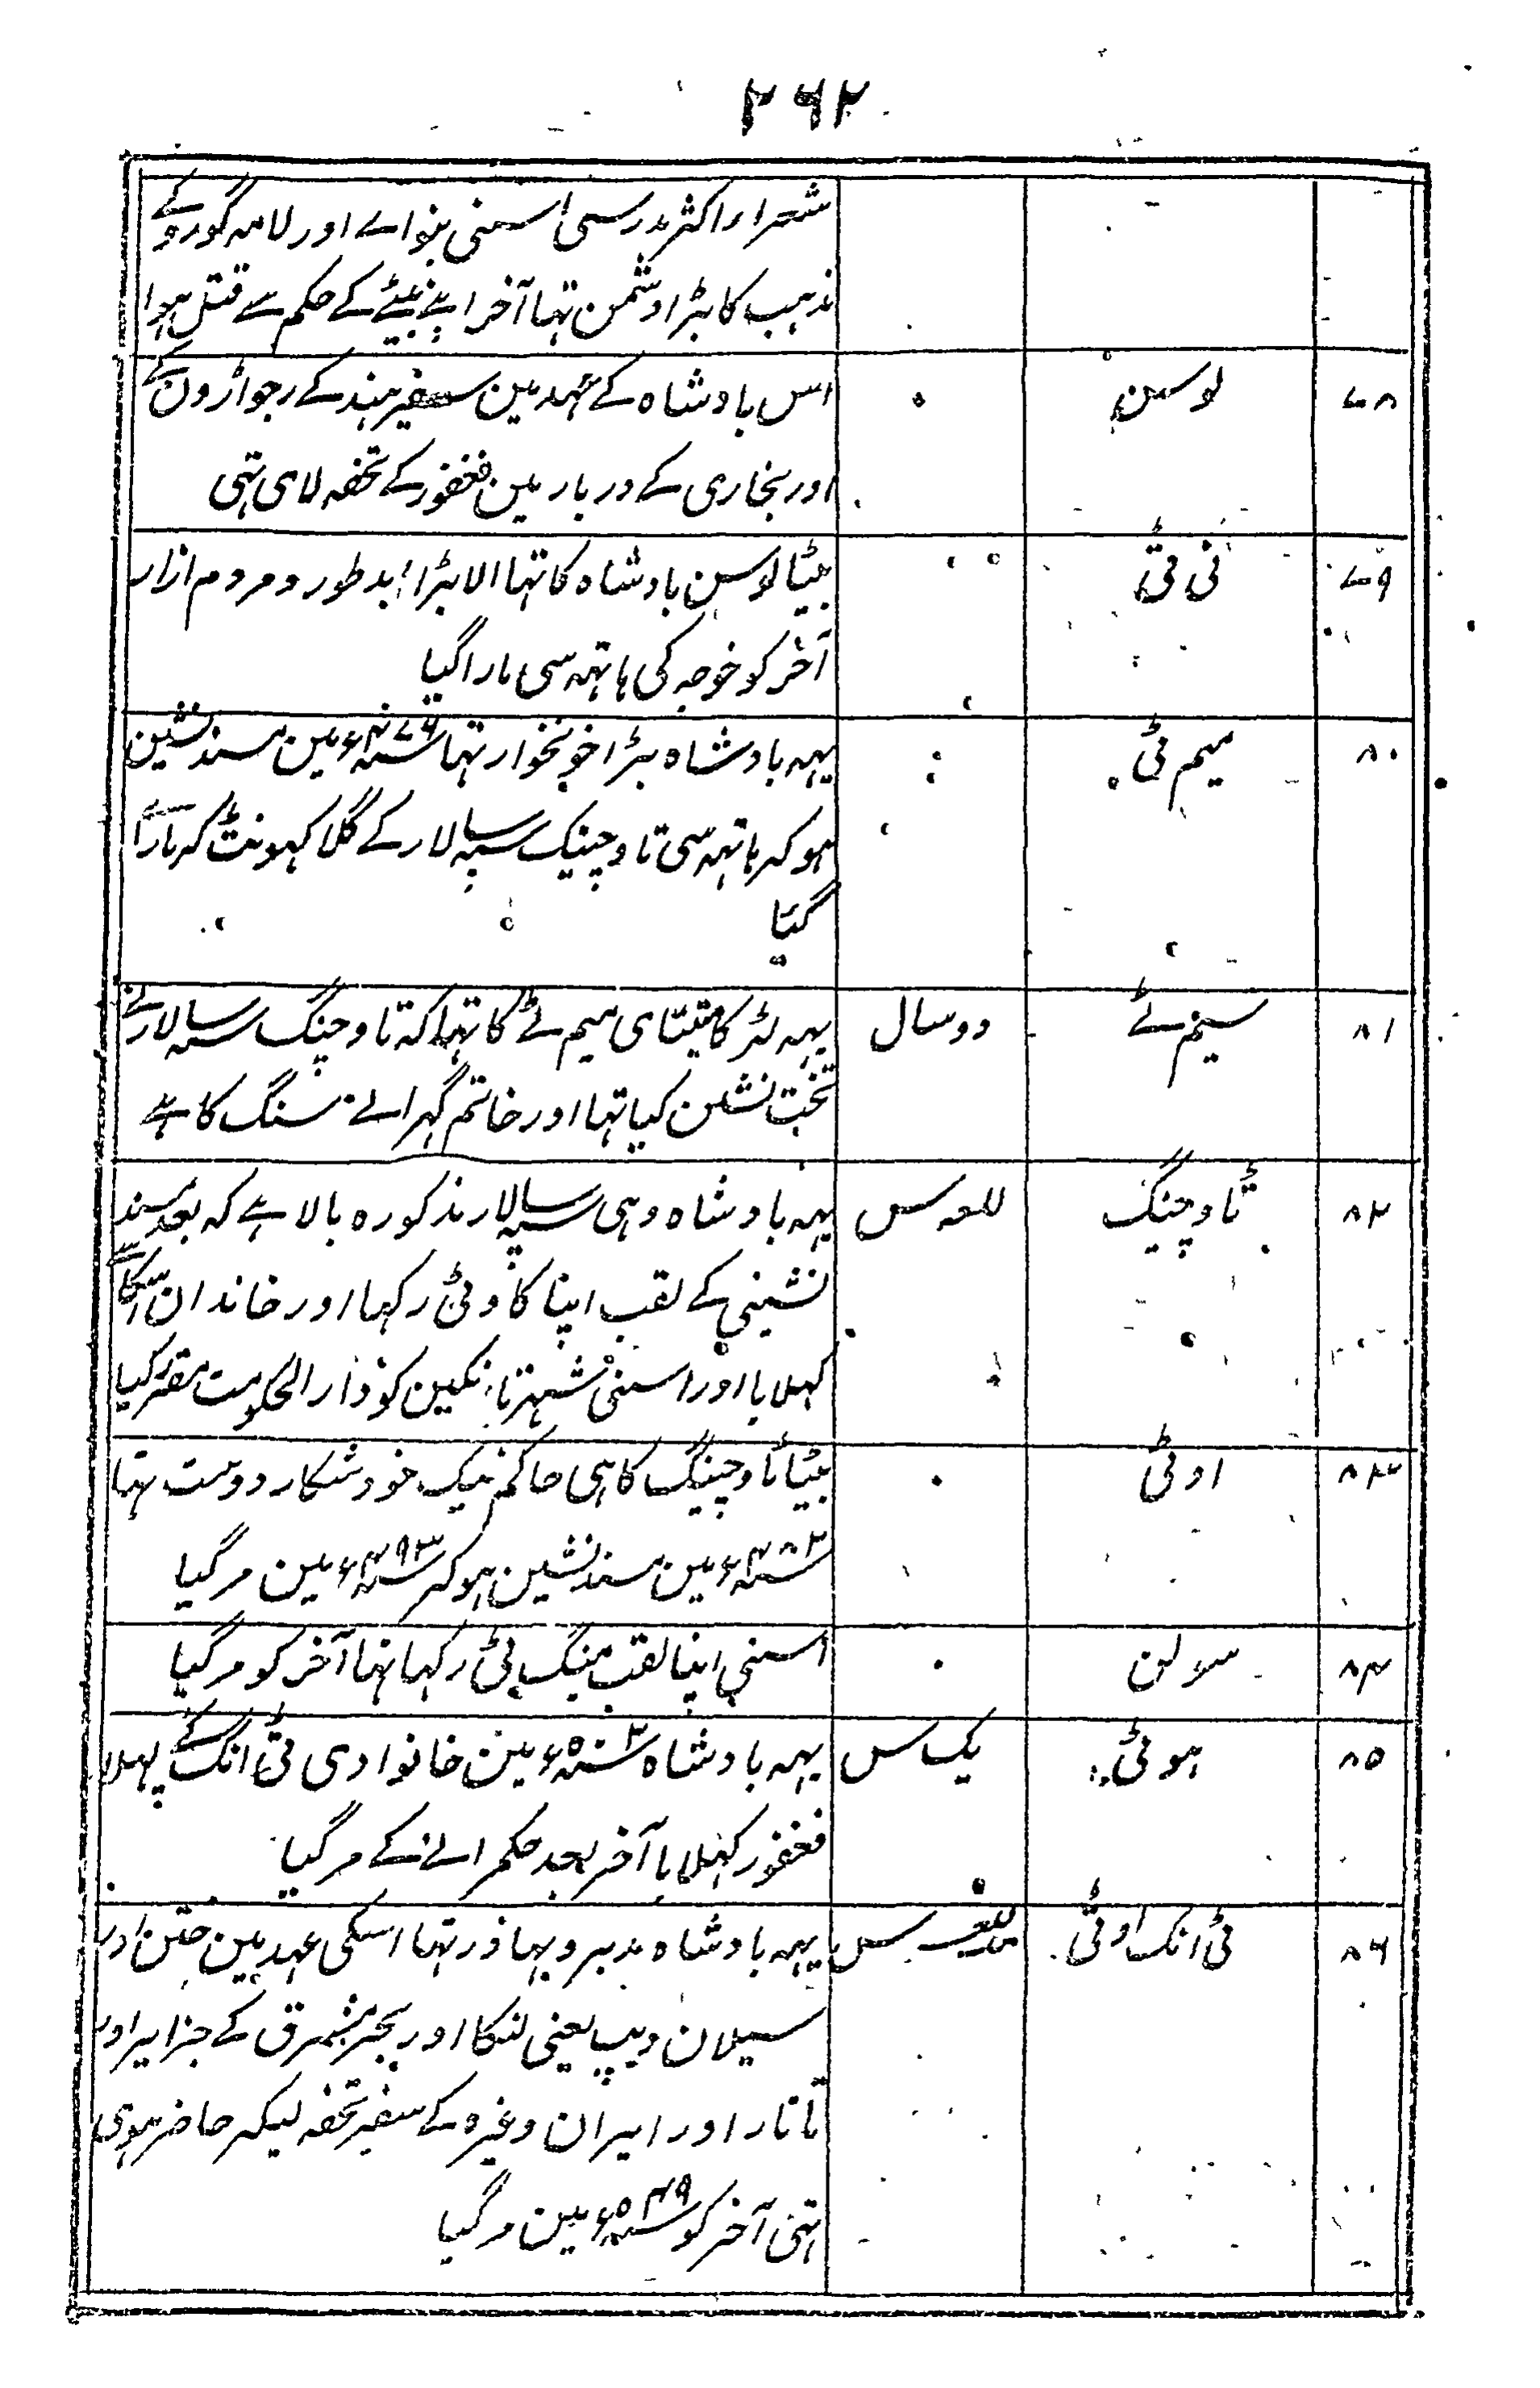 ۲۶۲
شعرا اور اکثر مدرسی اسنی بنوائے اور لامہ گورو کے
مذہب کا بڑا دشمن تہا آخر اپنے بیٹے کے حکم سے قتل ہوا
۷۸ لوسن ۰ اس بادشاہ کے عہد مین سفیر ہند کے رجواڑون کے
اور بخاری کے دربار مین فغفور کے تحفہ لای تہی
۷۹ فی ٹی بیٹا لوسن بادشاہ کا تہا الا بڑا بدطور و مردم ازار
آخر کو خوجہ کی ہاتہہ سی مارا گیا
۸۰ میم ٹی یہہ بادشاہ بڑا خونخوار تہا سنہ ۴۷۶ء مین مسند نشین
ہو کر ہاتہہ سی تاوچینگ سپہ سالار کے گلا کہونٹ کر مارا
گیا
۸۱ سیم ٹے دو سال یہہ لڑکا متبنای میم ٹے کا تہا کہ تاوچنگ سپہ سالار نے
تخت نشین کیا تہا اور خاتم گہرانے سنگ کا ہے
۸۲ تاوچنگ للعہ س یہہ بادشاہ وہی سپہ سالار مذکورہ بالا ہے کہ بعد مسند
نشینی کے لقب اپنا کاوٹی رکہا اور خاندان اسکا سے
کہلایا اور اسنی شہر نانکین کو دار الحکومت مقرر کیا
۸۳ اوٹی ۰ بیٹا تاوچینگ کا ہی حاکم نیک خو و شکار دوست تہا
سنہ ۴۸۳ء مین مسند نشین ہو کر سنہ ۴۹۳ء مین مر گیا
۸۴ سولن ۰ اسنی اپنا لقب مینگ ٹی رکہا تہا آخر کو مر گیا
۸۵ ہوٹی یک س یہہ بادشاہ سنہ ۵۰۲ء مین خانوادی ٹی انگ کے پہلا
فغفور کہلایا آخر بعد حکمرانے کے مر گیا
۸۶ ٹی انگ اوٹی س یہہ بادشاہ مدبر و بہادر تہا اسکی عہد مین ختن اور
سیلان دیپ یعنی لنکا اور بحر مشرق کے جزایر اور
تاتار اور ایران وغیرہ کے سفیر تحفہ لیکر حاضر ہوی
تہی آخر کو سنہ ۵۴۹ء مین مر گیا